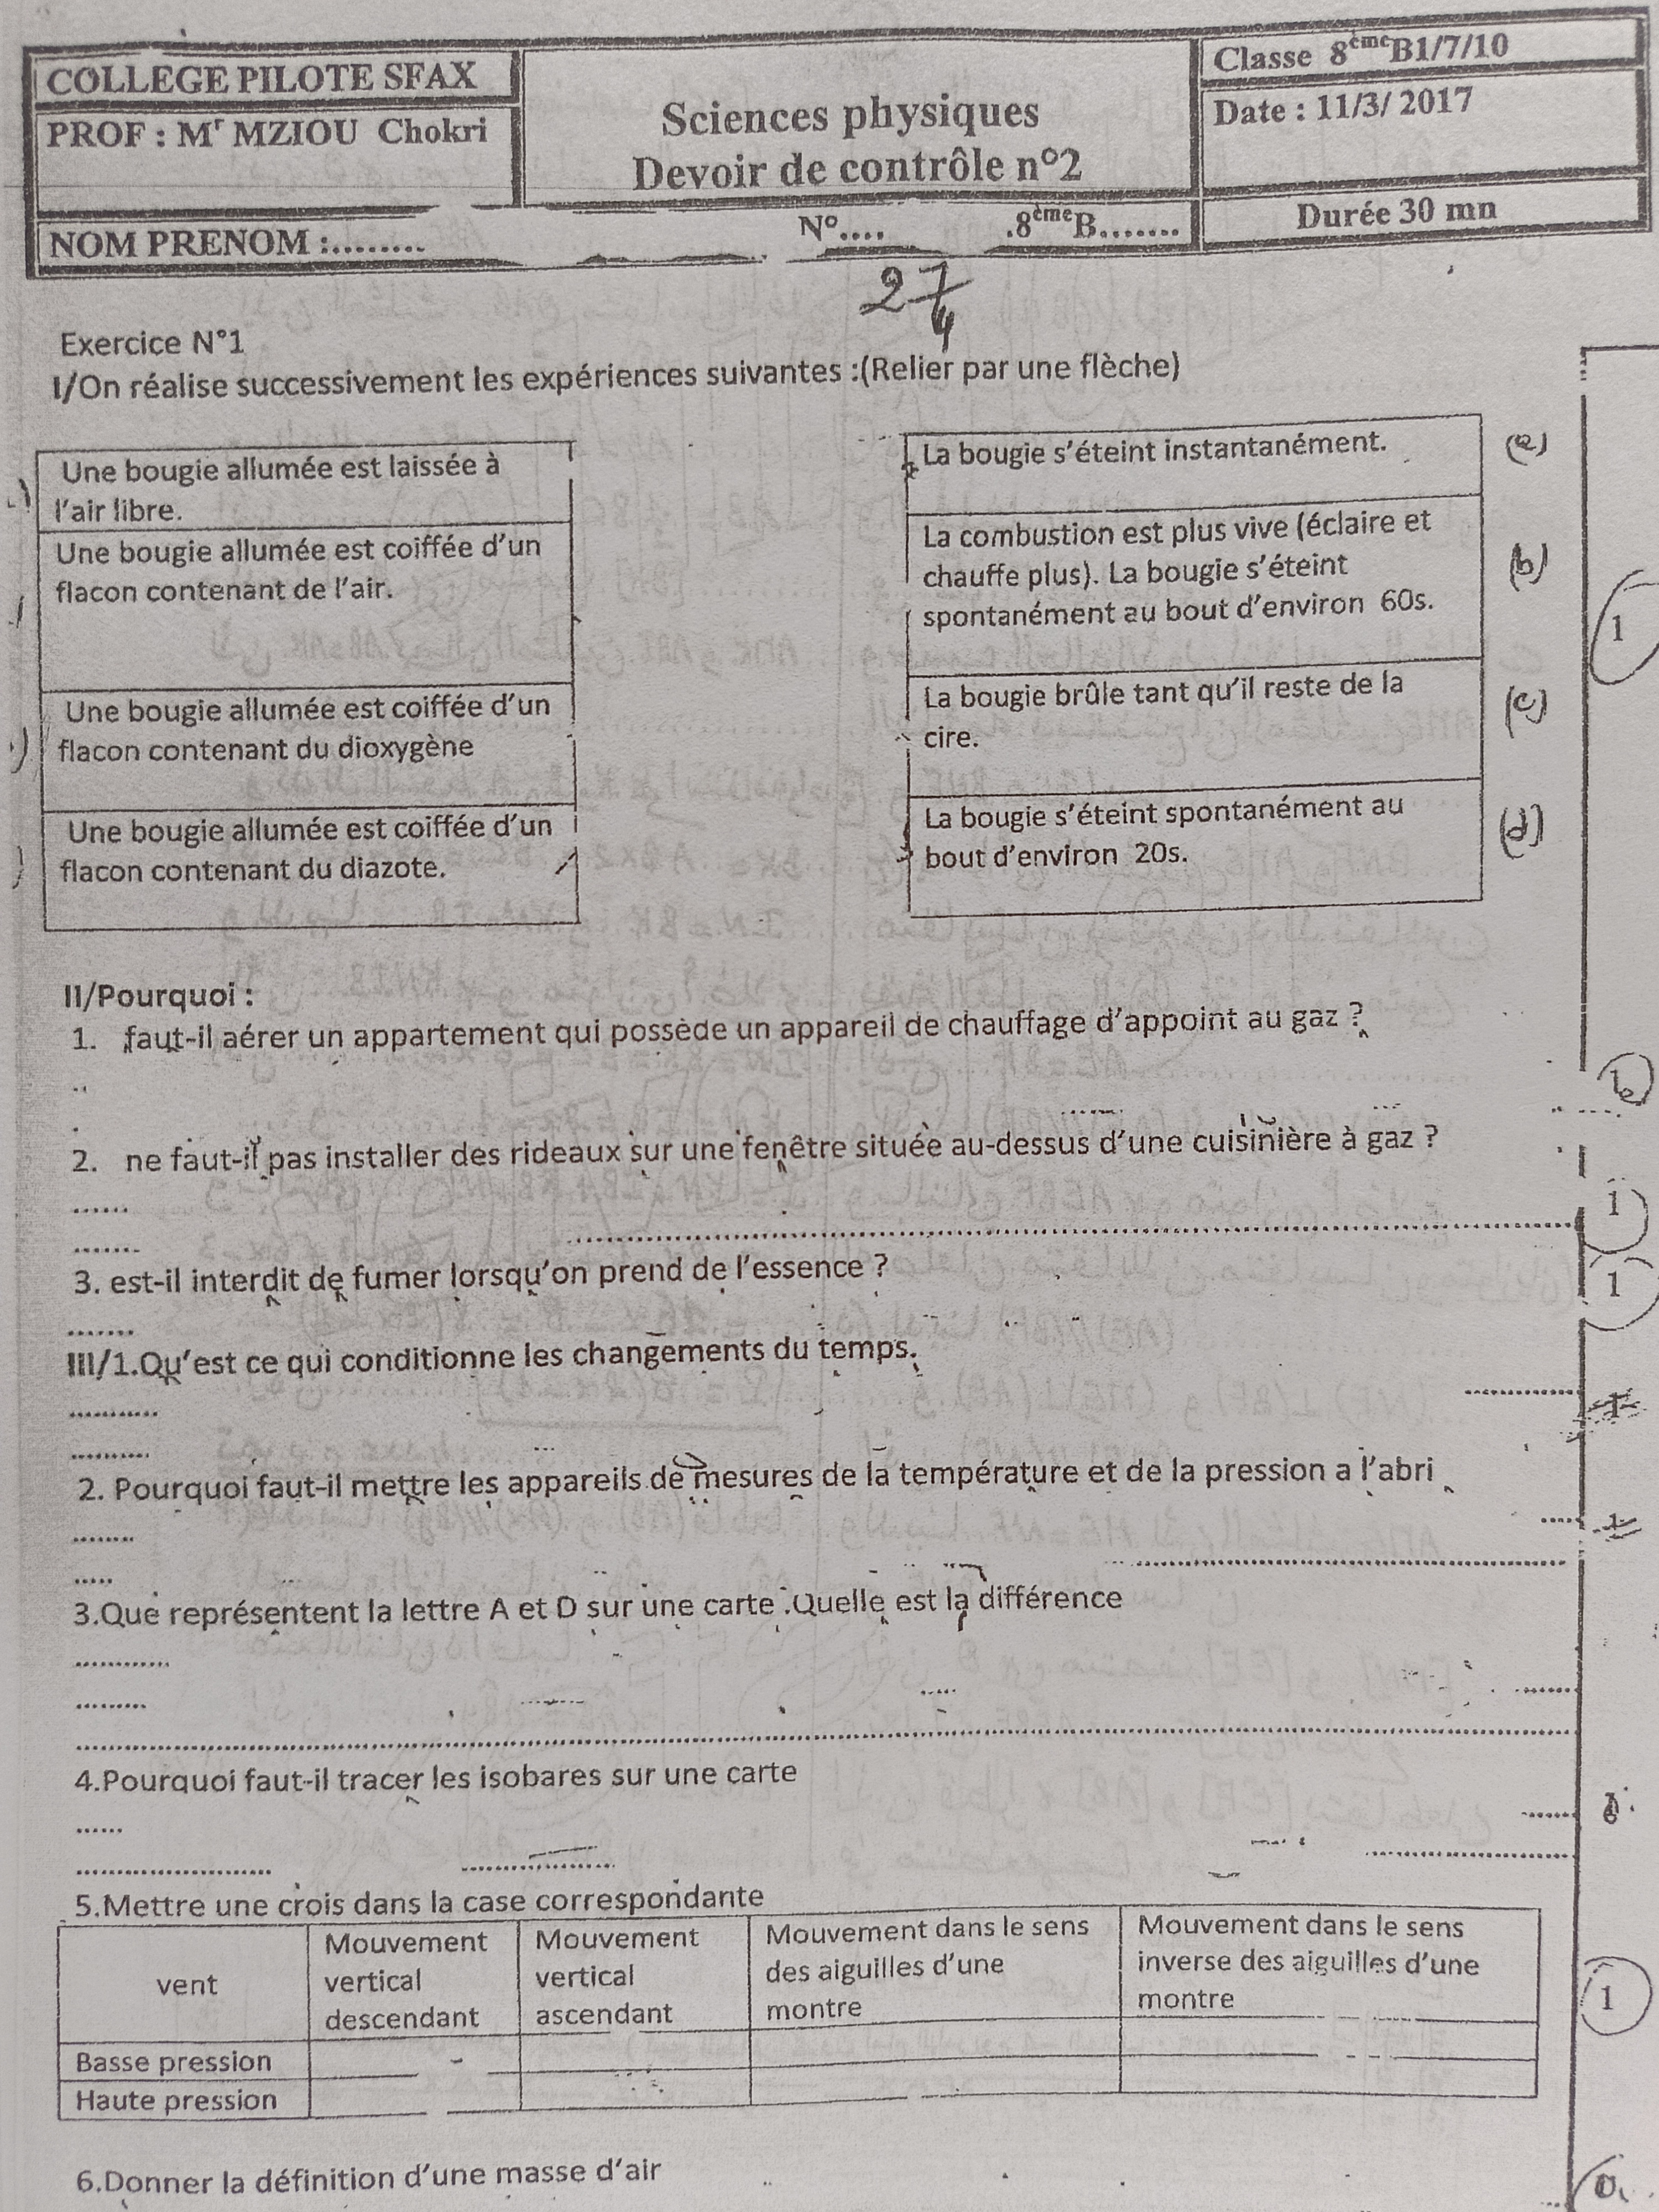 COLLEGE PILOTE SFAX
PROF : Mr MZIOU Chokri
Sciences physiques
Devoir de contrôle n°2
Classe 8ème B1/7/10
Date : 11/3/ 2017
NOM PRENOM :........
N°....
.8ème B.......
Durée 30 mn
27
4
Exercice N°1
I/On réalise successivement les expériences suivantes :(Relier par une flèche)
Une bougie allumée est laissée à
l'air libre.
Une bougie allumée est coiffée d'un
flacon contenant de l'air.
Une bougie allumée est coiffée d'un
flacon contenant du dioxygène
Une bougie allumée est coiffée d'un
flacon contenant du diazote.
La bougie s'éteint instantanément.
(a)
La combustion est plus vive (éclaire et
chauffe plus). La bougie s'éteint
spontanément au bout d'environ 60s.
(b)
1
La bougie brûle tant qu'il reste de la
cire.
(c)
La bougie s'éteint spontanément au
bout d'environ 20s.
(d)
II/Pourquoi :
1. faut-il aérer un appartement qui possède un appareil de chauffage d'appoint au gaz ?
2. ne faut-il pas installer des rideaux sur une fenêtre située au-dessus d'une cuisinière à gaz ?
1
3. est-il interdit de fumer lorsqu'on prend de l'essence ?
1
III/1.Qu'est ce qui conditionne les changements du temps.
1
2. Pourquoi faut-il mettre les appareils de mesures de la température et de la pression a l'abri
1
3.Que représentent la lettre A et D sur une carte .Quelle est la différence
4.Pourquoi faut-il tracer les isobares sur une carte
5.Mettre une crois dans la case correspondante
vent
Mouvement
vertical
descendant
Mouvement
vertical
ascendant
Mouvement dans le sens
des aiguilles d'une
montre
Mouvement dans le sens
inverse des aiguilles d'une
montre
1
Basse pression
Haute pression
6.Donner la définition d'une masse d'air